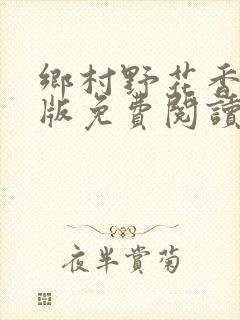 鄉村野花香
版免費閱讀
夜半賞菊